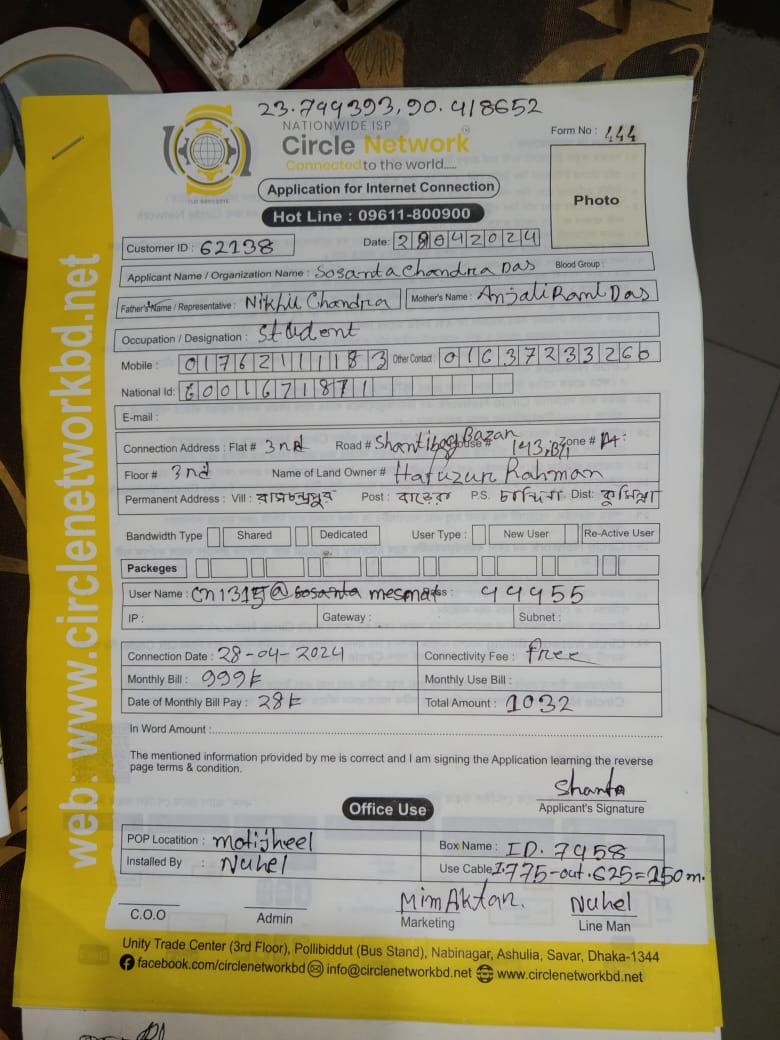 23.799393, 90.418652
NATIONWIDE ISP
Circle Network
Connected to the world.....
Form No : 444
Application for Internet Connection
Photo
Hot Line : 09611-800900
Customer ID : 62138
Date: 28042024
Applicant Name / Organization Name : Sosanta Chandra Das Blood Group :
Father's Name / Representative : Nikhil Chandra Mother's Name : Anjali Rani Das
Occupation / Designation : Student
Mobile : 01762111183 Other Contact : 01637233260
National Id: 6001671871
E-mail :
Connection Address : Flat # 3rd Road # Shantibag Bazar House # 143, B/1 Zone #
Floor # 3rd Name of Land Owner # Hafuzur Rahman
Permanent Address : Vill : রামচন্দ্রপুর Post : বাড়েরা P.S. চান্দিনা Dist: কুমিল্লা
Bandwidth Type Shared Dedicated User Type : New User Re-Active User
Packeges
User Name : @sosanta : 44455
IP : Gateway : Subnet :
Connection Date : 28-04-2024 Connectivity Fee : free
Monthly Bill : 999৳ Monthly Use Bill :
Date of Monthly Bill Pay : 28৳ Total Amount : 1032
In Word Amount :
The mentioned information provided by me is correct and I am signing the Application learning the reverse
page terms & condition.
Shanta
Applicant's Signature
Office Use
POP Locatition : motijheel Box Name : ID. 7458
Installed By : Nuhel Use Cable I.775-out.625=150m.
C.O.O Admin Mim Aktar. Marketing Nuhel Line Man
Unity Trade Center (3rd Floor), Pollibiddut (Bus Stand), Nabinagar, Ashulia, Savar, Dhaka-1344
facebook.com/circlenetworkbd info@circlenetworkbd.net www.circlenetworkbd.net
web: www.circlenetworkbd.net